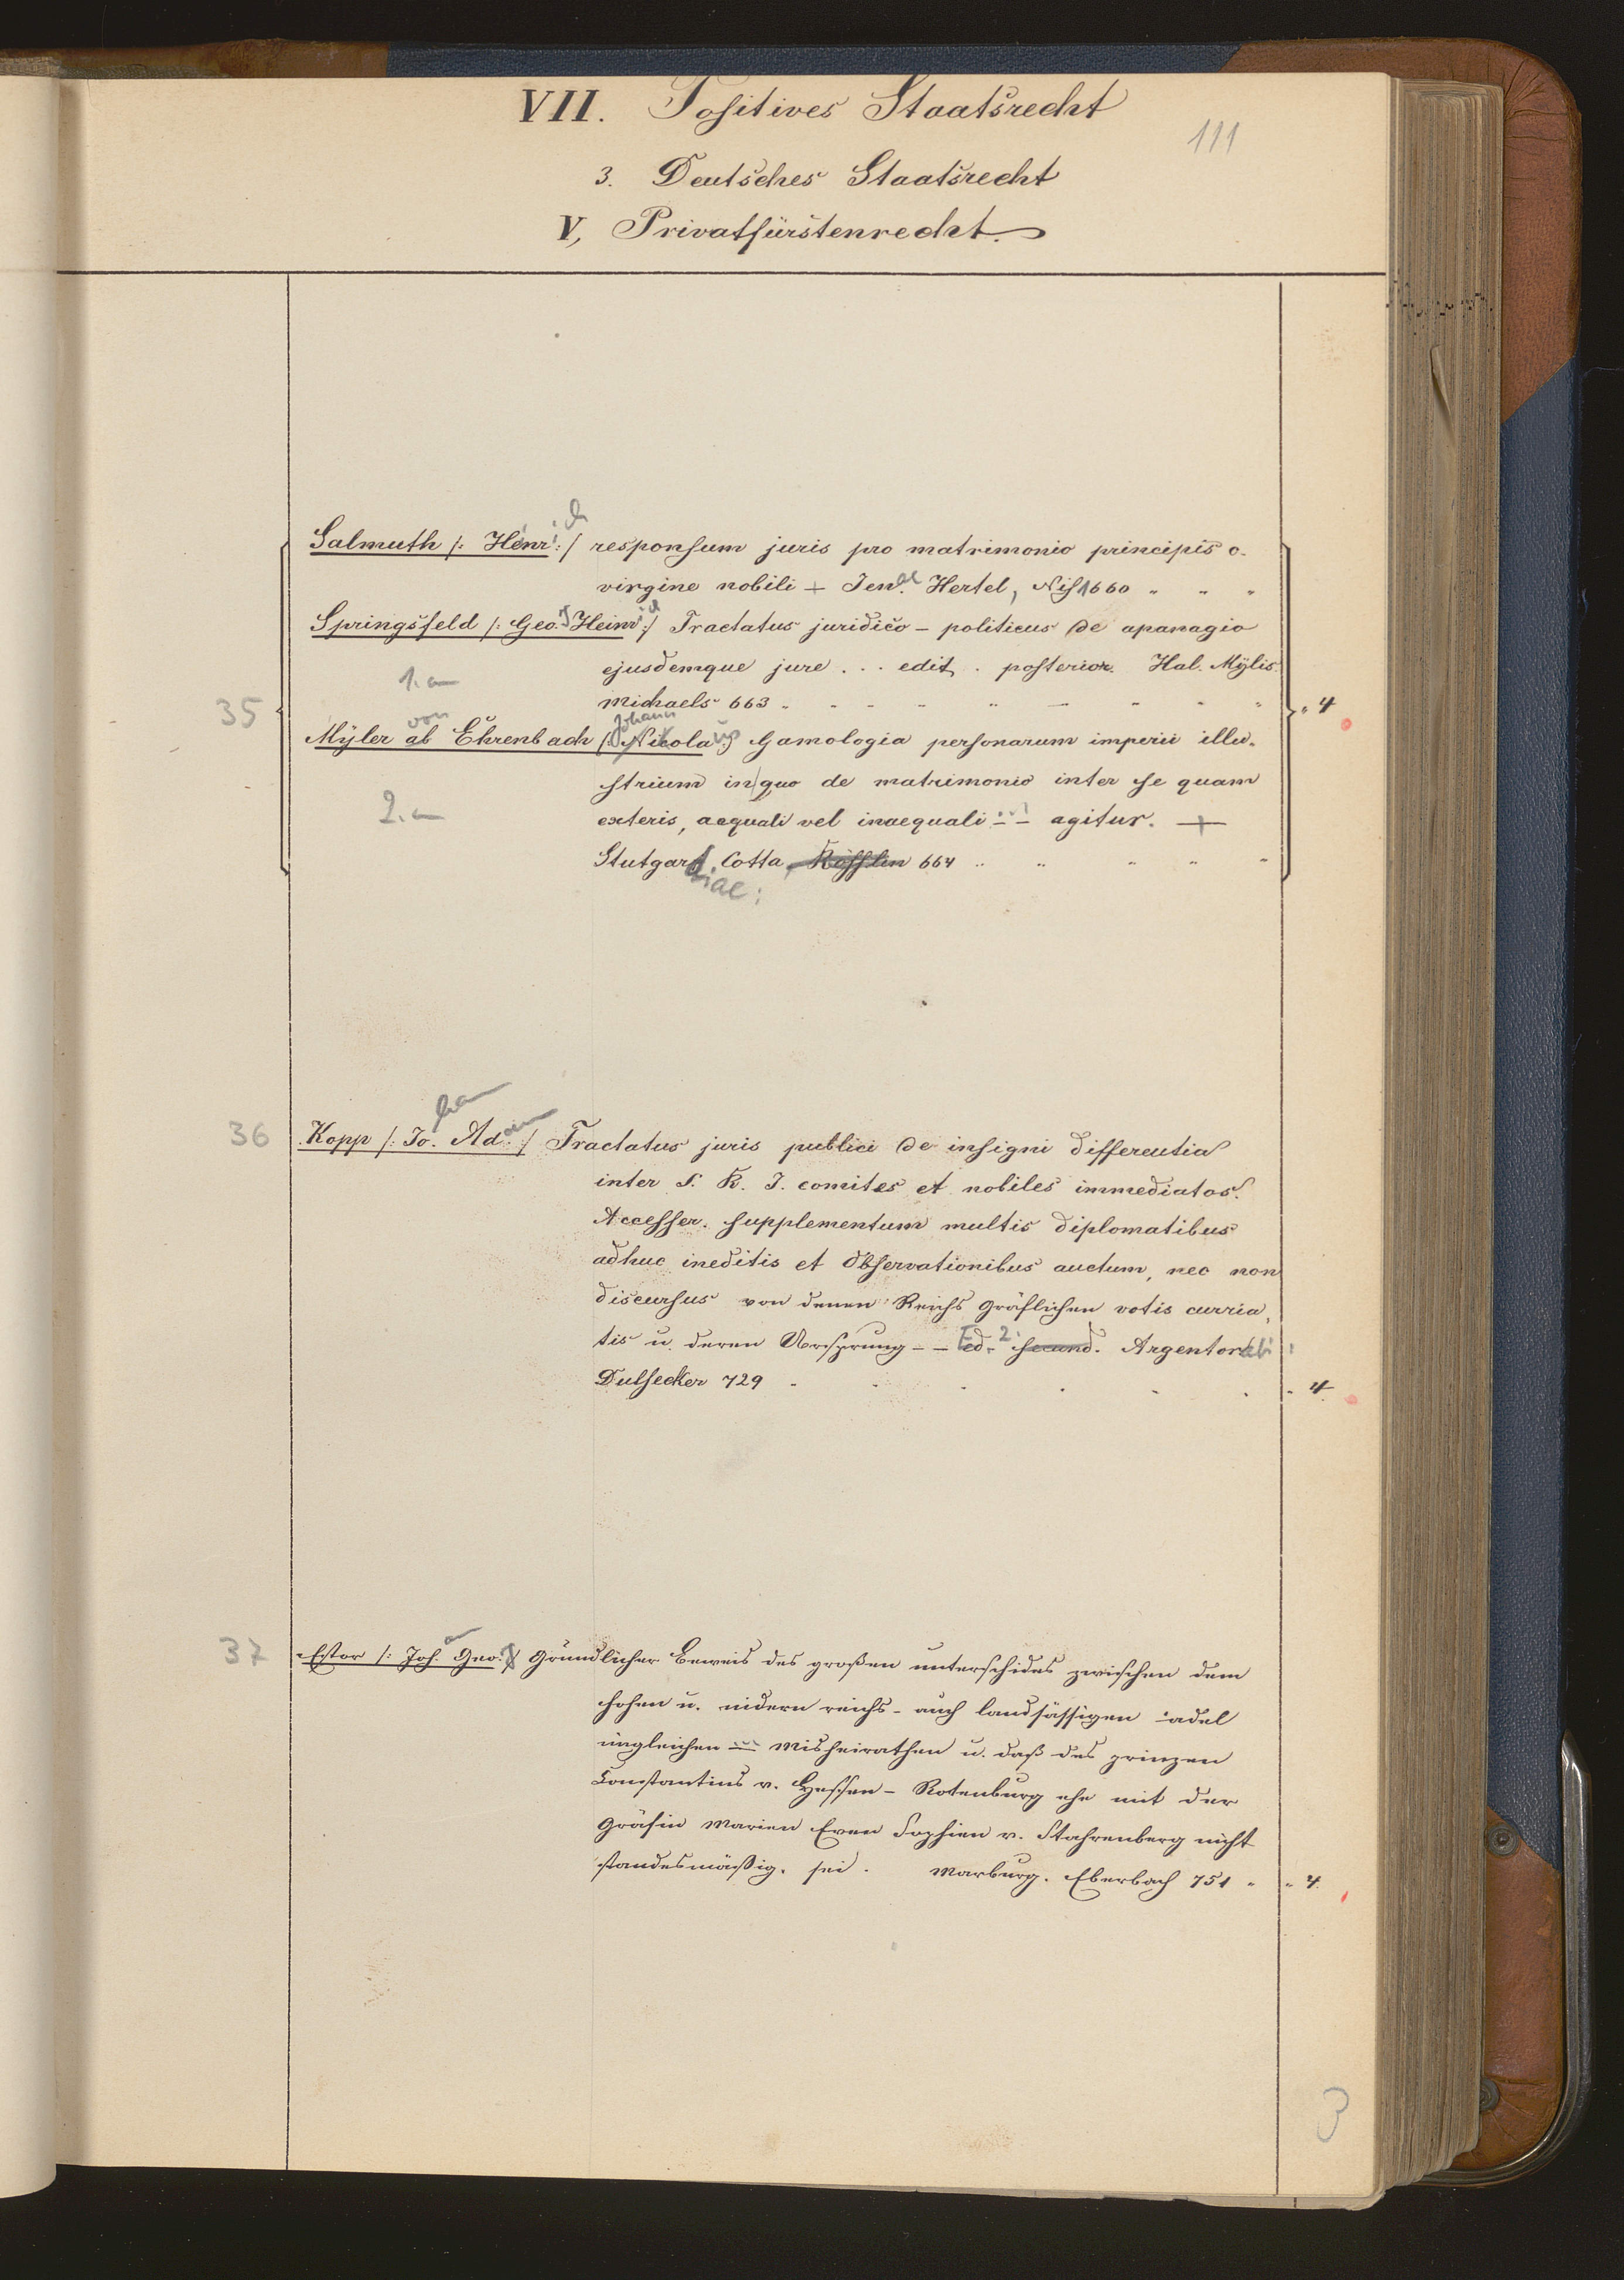 VII. Positives Staatsrecht
111
3. Deutsches Staatsrecht
V, Privatfürstenrecht.
Salmuth /: Henrich :/ responsum juris pro matrimonio principis c.
virgine nobili + Jenae Hertel, Nis 1660 " " "
Springsfeld /: Geo. Heinrich :/ Tractatus juridico - politicus de apanagio
ejusdemque jure . . . edit. posterior. Hal. Mÿlis.
1. a
35
Michaels 663 " " " " " " " " " " 4
Mÿler ab von Ehrenbach /: Johann Nikolaus :/ Gamologia personarum imperii illu-
strium in quo de matrimonio inter se quam
2. a
exteris, aequali vel inaequali - - - agitur. +
Stutgardiae; Cotta, Rösslin 664 " " " " "
36 Kopp /: Johan Adam :/ Tractatus juris publici de insigni differentia
inter S. R. I. comites et nobiles immediatos.
Accesser. supplementum multis diplomatibus
adhuc ineditis et observationibus auctum, nec non
discursus von denen Reichs Gräflichen votis curria,
tis u. deren Ursprung - - Ed. 2. secund. Argentorati:
Dulsecker 729 " " " " " " " 4
37 Estor /: Johan Geo. :/ Gründlicher Beweis des großen unterschides zwischen dem
hohen u. nidern reichs- auch landsässigen adel
ungleichen - - - Misheirathen u. daß des prinzen
Constantins v. Hessen - Rotenburg ehe mit der
Gräfin Marien Even Sophien v. Stahrenberg nicht
standesmäßig. sei. Marburg. Eberbach 751 " " 4.
3